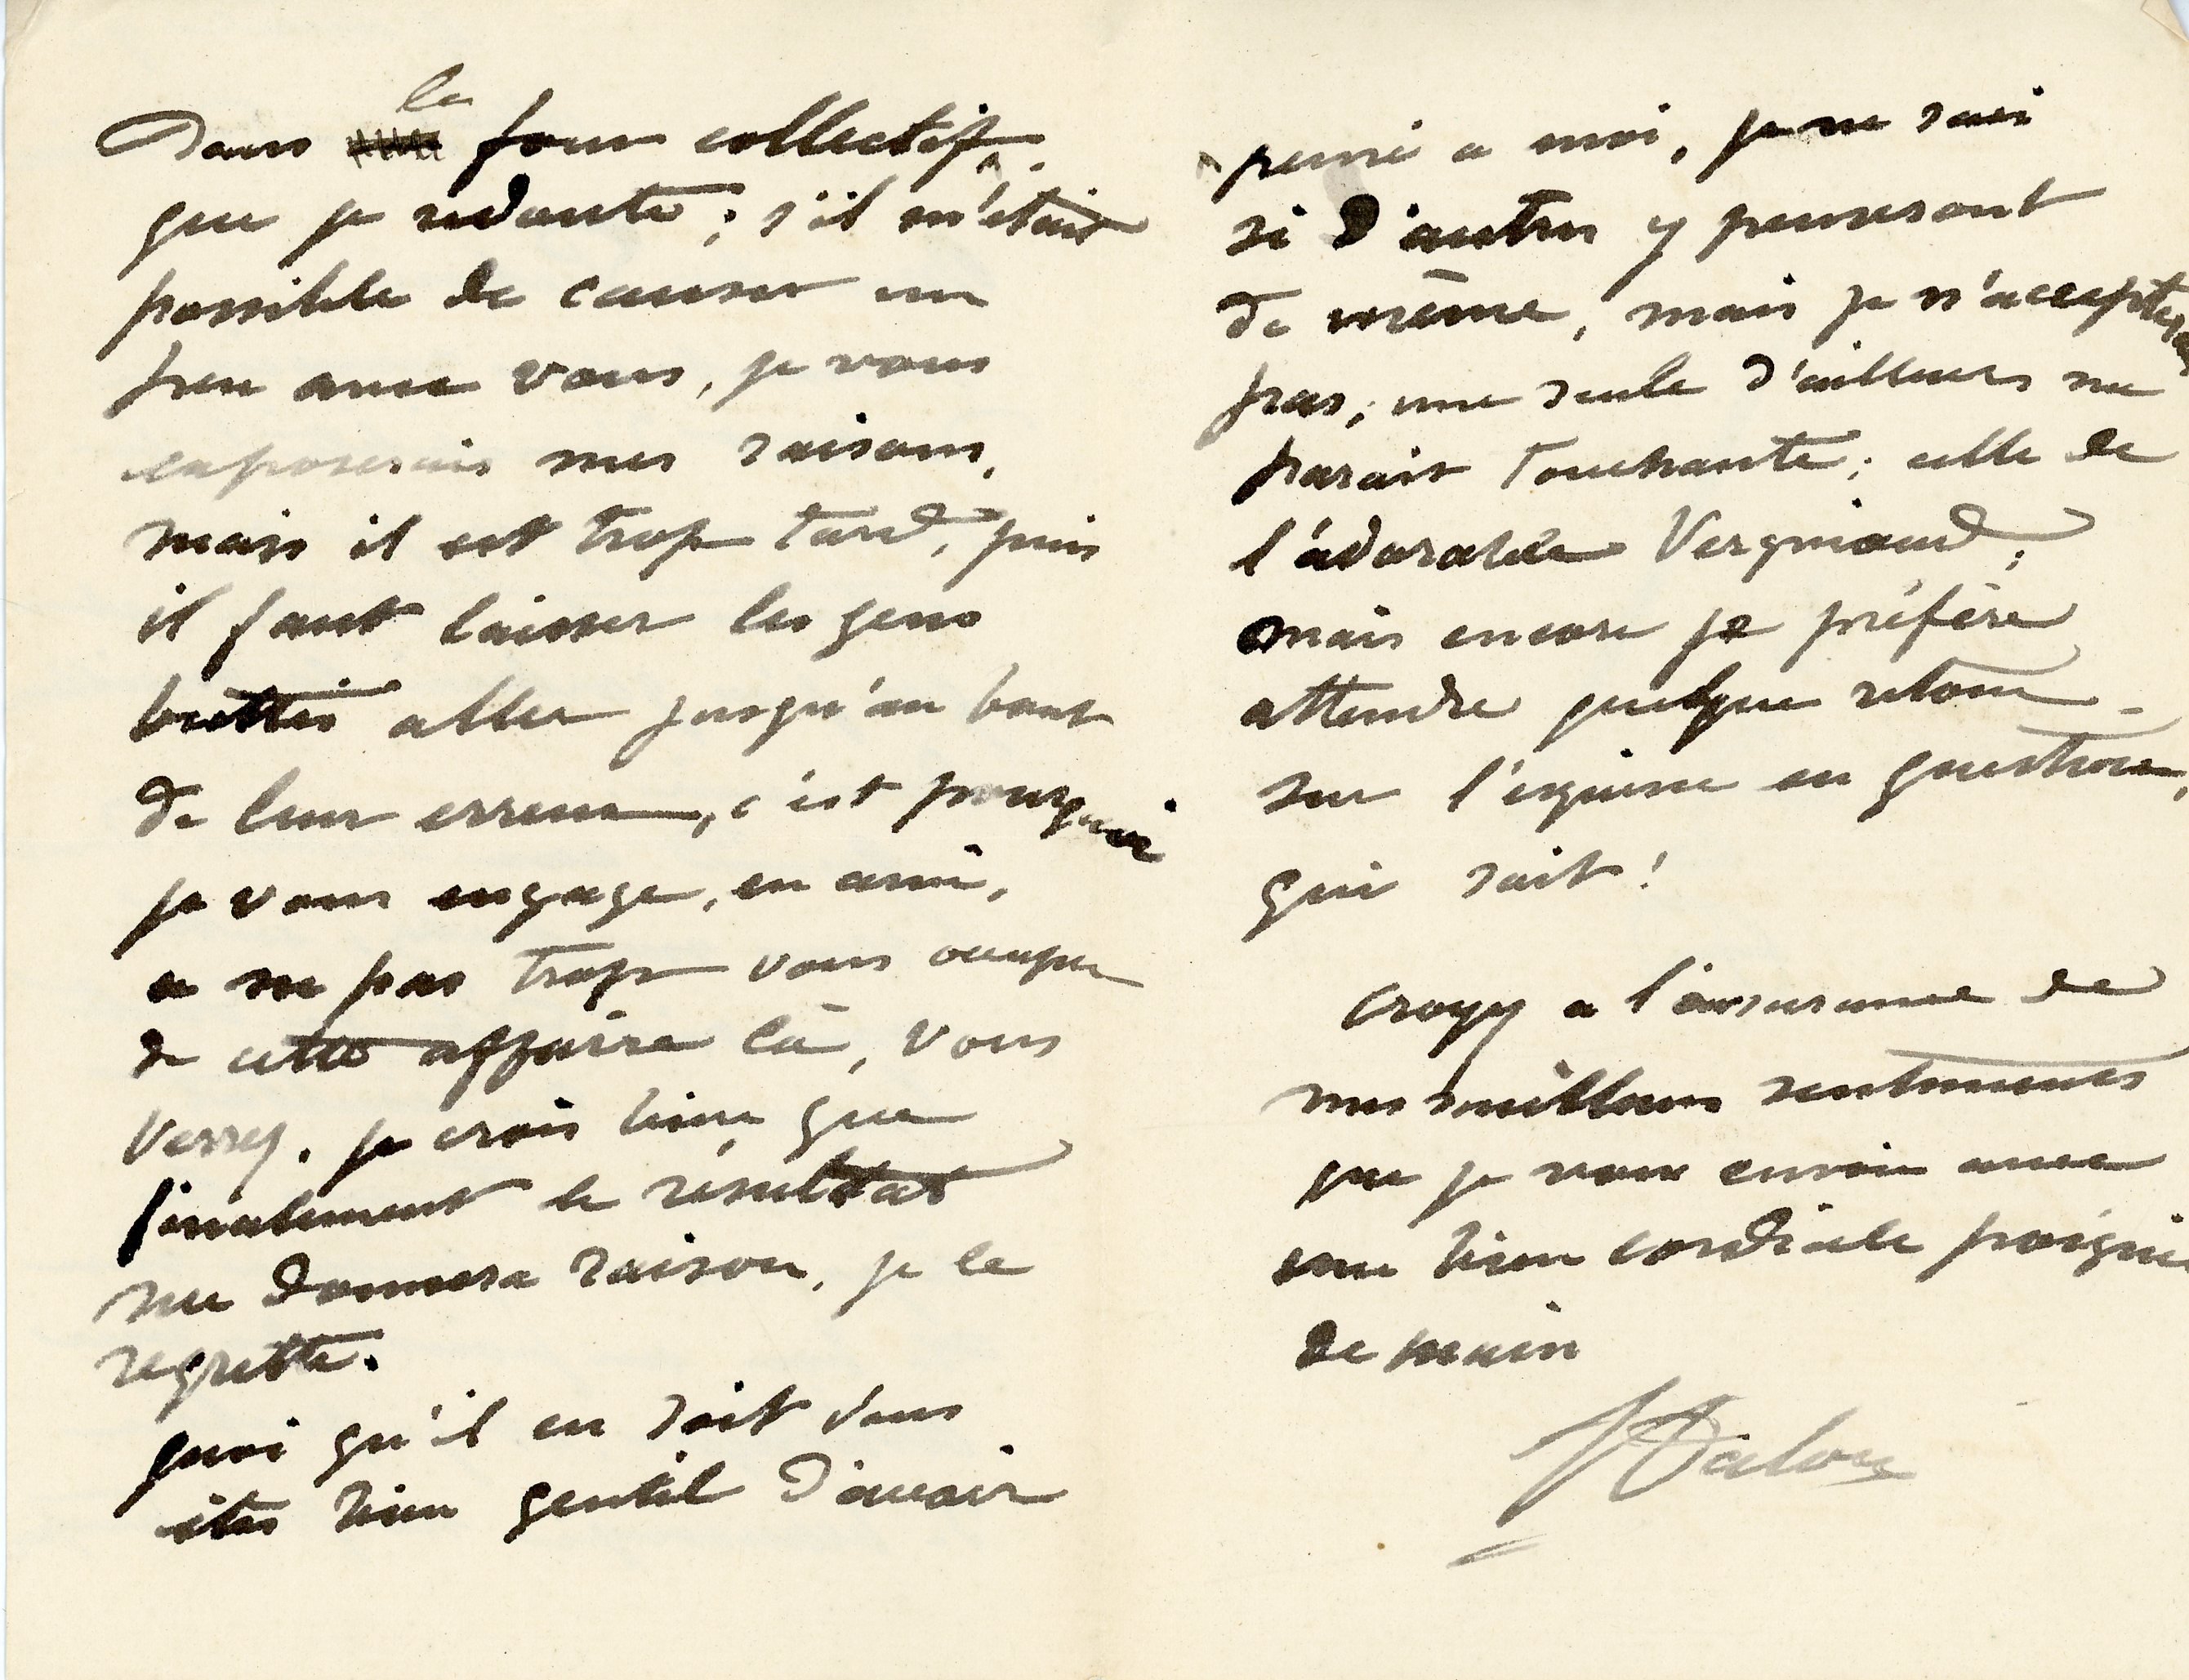 la
Dans four collectif
que je redoute ; s'il m'était
possible de causer un
peu avec vous, je vous
exposerais mes raisons,
mais il est trop tard, puis
il faut laisser les gens
buttés aller jusqu'au bout
de leur erreur, c'est pourquoi
je vous engage, en ami,
a ne pas trop vous occuper
de cette affaire là, vous
verrez. je crois bien que
finalement le résultat
me donnera raison, je le
regrette.
quoi qu'il en soit vous
êtes bien gentil d'avoir
pensé a moi, je ne sais
si d'autres y penseront
de même, mais je n'accepterai
pas, une seule d'ailleurs me
parait touchante ; celle de
l'adorable Vergniaud ;
mais encore je préfère
attendre quelque retour
sur l'esquisse en question,
qui sait !
croyez a l'assurance de
mes meilleurs sentiments
que je vous envoie avec
une bien cordiale poignée
de main
J Dalou